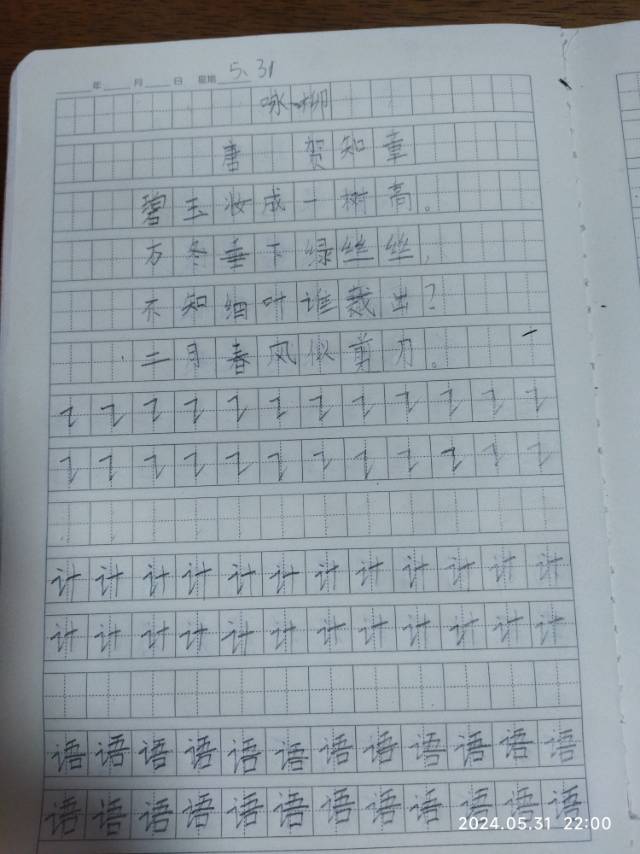 年 月 日 星期 5.31
咏柳
唐 贺知章
碧玉妆成一树高。
万冬垂下绿丝丝,
不知细叶谁裁出?
二月春风似剪刀。
讠讠讠讠讠讠讠讠讠讠讠讠
讠讠讠讠讠讠讠讠讠讠讠讠
计计计计计计计计计计计计
计计计计计计计计计计计计
语语语语语语语语语语语语
语语语语语语语语语语语语
2024.05.31 22:00